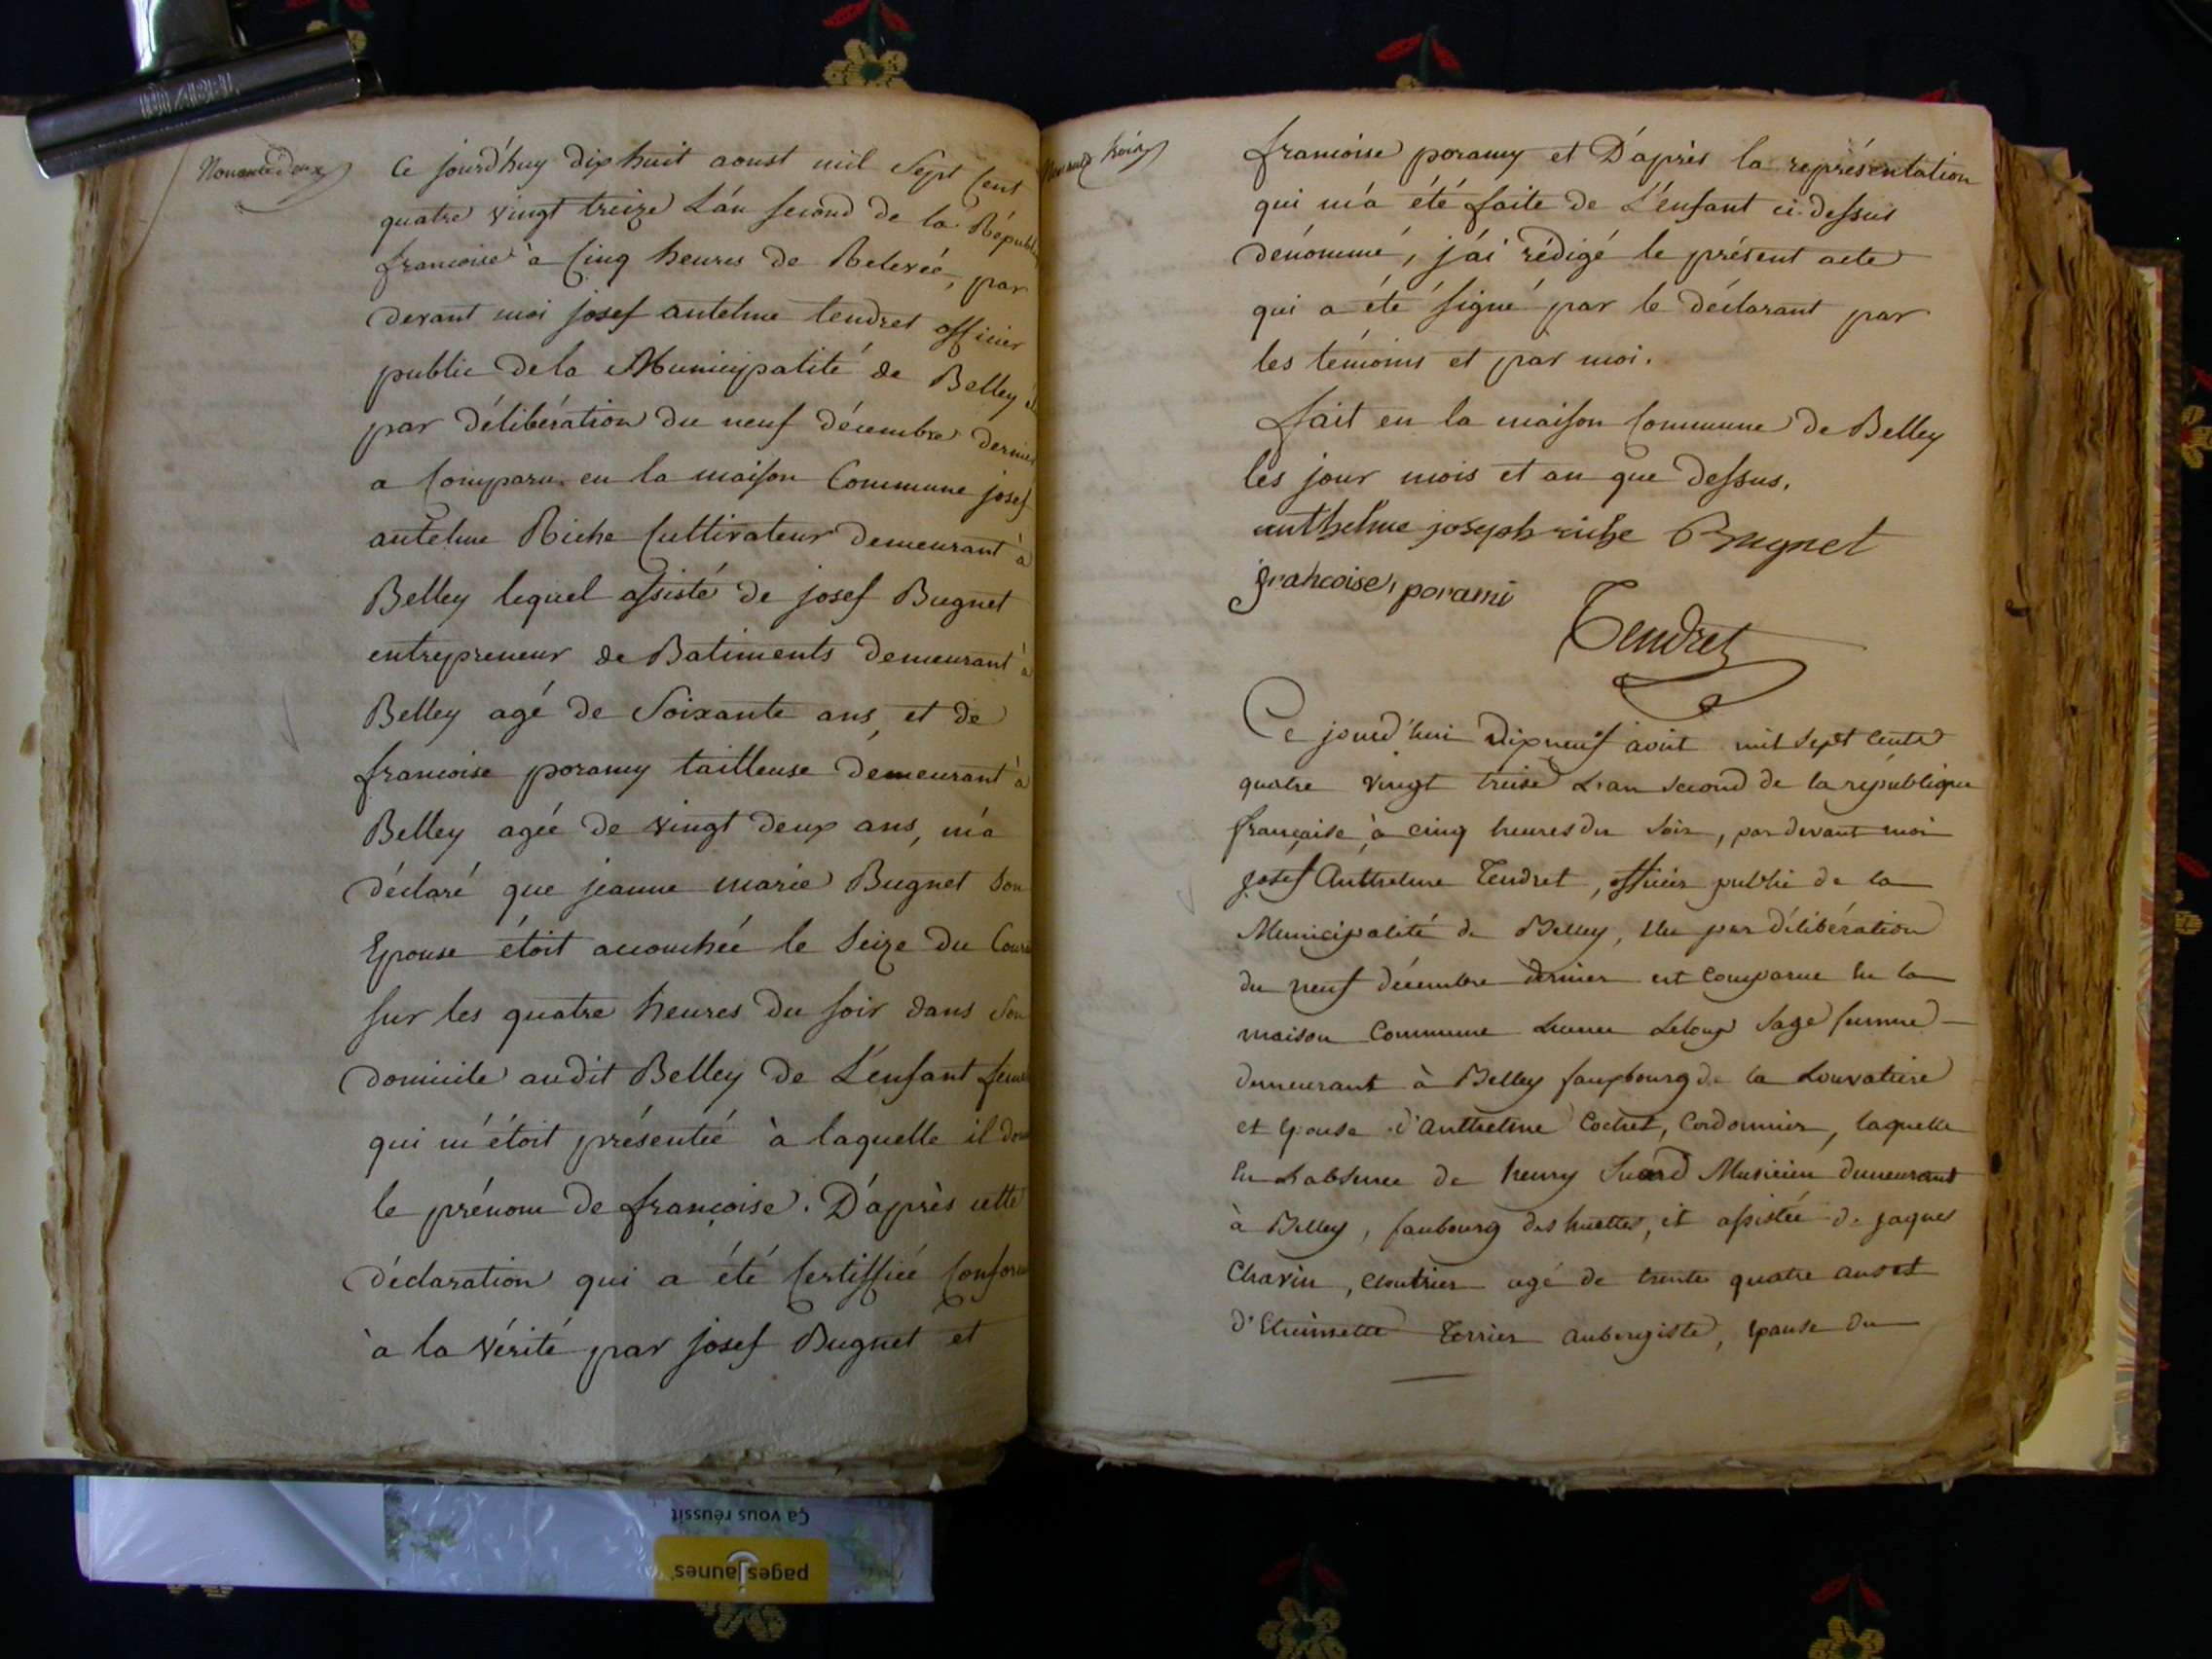 Nonante deux
Ce jourd'huy dix huit aoust mil Sept Cent
quatre vingt treize L'an second de la Républi
francoise à Cinq heures de Relevée, par
devant moi josef antelme tendret officier
public de la Municipalité de Belley
par délibération du neuf décembre dernier
a Comparu en la maison Commune josef
antelme Riche Cultivateur demeurant à
Belley lequel assisté de josef Bugnet
entrepreneur de Batiments demeurant à
Belley agé de Soixante ans, et de
francoise poramy tailleuse demeurant à
Belley agée de vingt deux ans, m'a
déclaré que jeanne marie Bugnet Son
Epouse étoit accouchée le Seize du Cour
sur les quatre heures du soir dans Son
domicile audit Belley de L'enfant feme
qui m'étoit présentée à laquelle il don
le prénom de françoise. D'après cette
déclaration qui a été Certiffiée Conforme
à la vérité par josef Bugnet et
Nonante trois
francoise poramy et D'après la représentation
qui m'a été faite de L'enfant ci-dessus
dénommé, j'ai rédigé le présent acte
qui a été signé par le déclarant par
les témoins et par moi.
fait en la maison Commune de Belley
les jour mois et an que dessus.
anthelme joseph riche Bugnet
francoise porami
Tendret
Ce jourd'hui dixneuf août mil Sept Cents
quatre vingt treise L'an Second de la république
française, à cinq heures du Soir, par devant moi
josef Anthelme Tendret, officier public de la
Municipalité de Belley, Elu par délibération
du neuf décembre dernier est Comparue En la
maison Commune Leloup Sage femme
demeurant à Belley fauxbourg de la Louvatiere
et Epouse d'Anthelme Cochet, Cordonnier, laquelle
En L'absence de henry Suard Musicien demeurant
à Belley, faubourg des huettes, et assistée de jaques
Chavin, Cloutrier agé de trente quatre ans et
d'Etiennette Terrier Aubergiste, Epouse du
Ça vous réussit
pagesjaunes